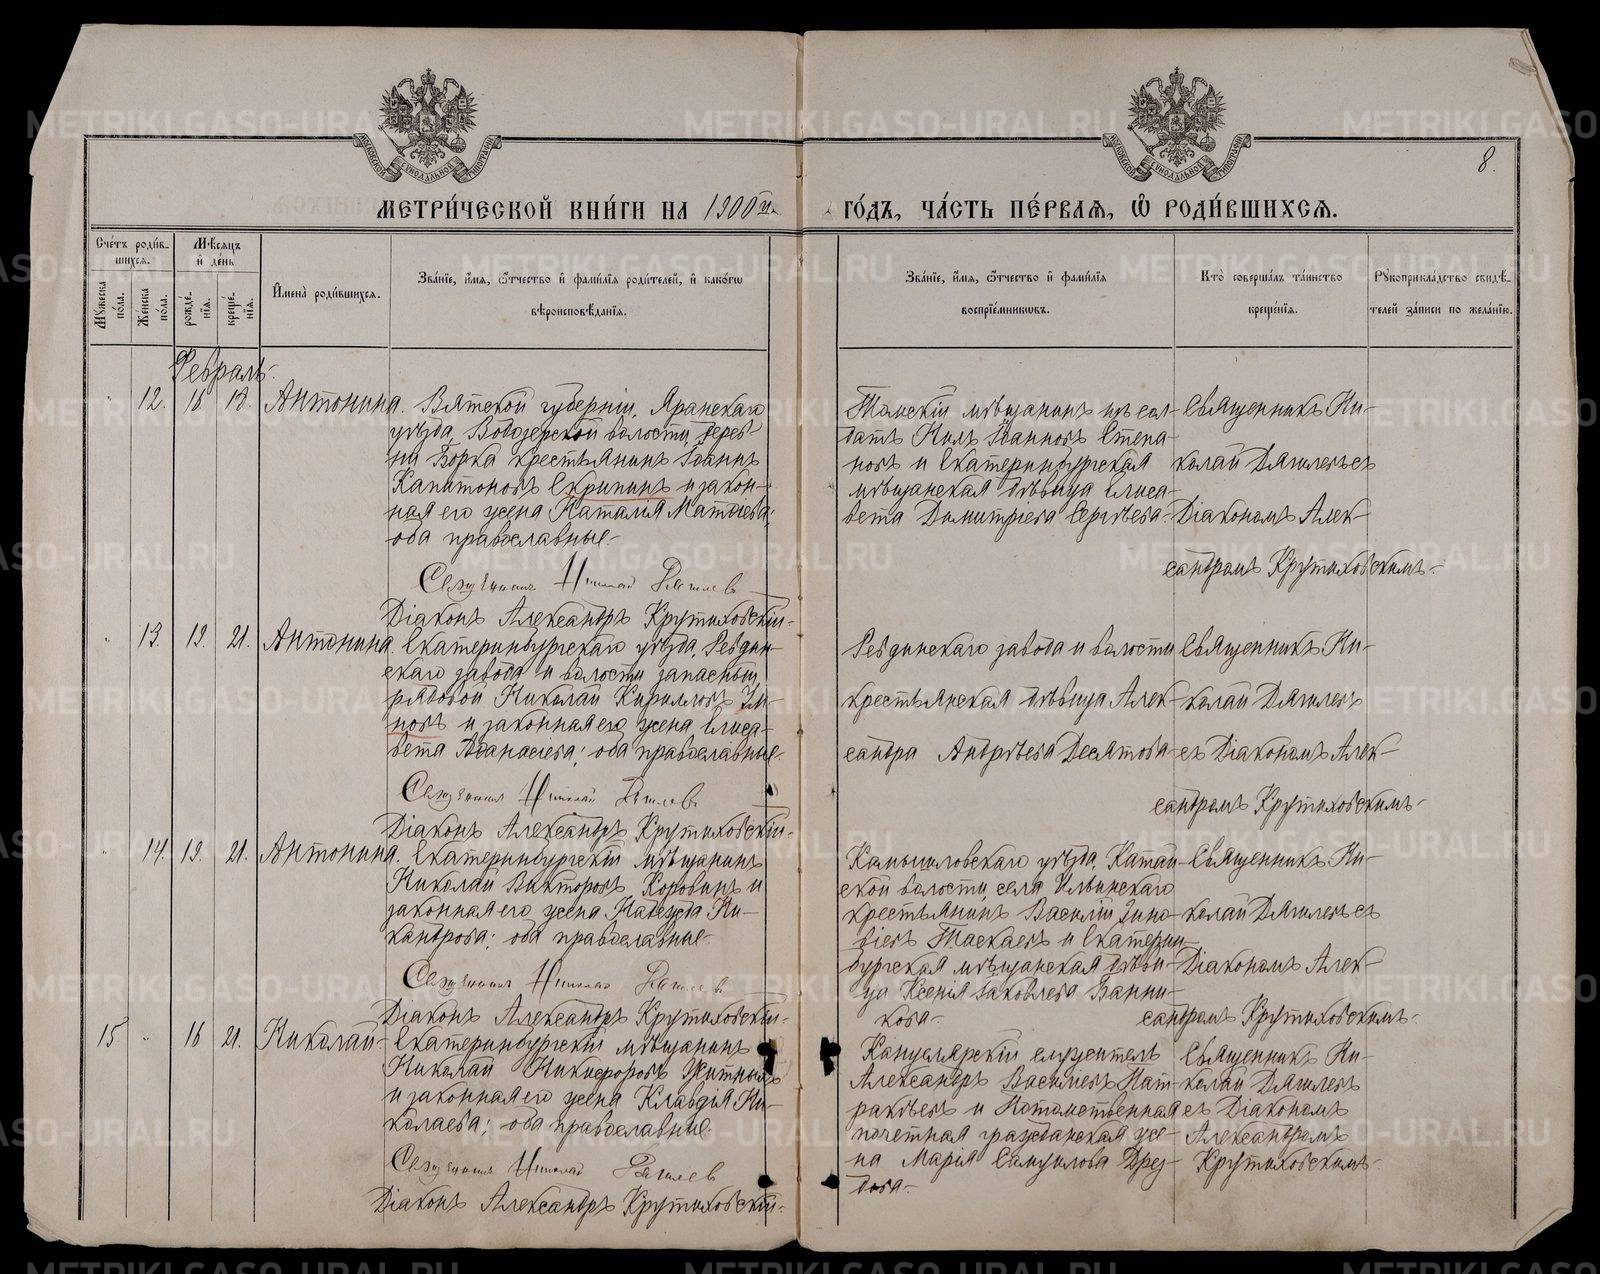 8.
МЕТРИ́ЧЕСКОЙ КНИ́ГИ НА 1900й
ГО́ДЪ, ЧА́СТЬ ПЕ́РВАѦ, Ѽ РОДИ́ВШИХСѦ.
Сче́тъ роди́в-
шихсѧ.
Мꙋжеска по́ла.
Же́нска по́ла.
Мѣ́сѧцъ
и҆ де́нь
рожде́-
нїѧ.
креще́-
нїѧ.
И҆мена̀ роди́вшихсѧ.
Зва́нїе, и҆́мѧ, ѻ҆́тчество и҆ фами́лїѧ роди́телей, и҆ како́гѡ
вѣроисповѣ́данїѧ.
Зва́нїе, и҆́мѧ, ѻ҆́тчество и҆ фами́лїѧ
воспрїе́мникѡвъ.
Кто̀ соверша́лъ та́инство
креще́нїѧ.
Рꙋкоприкла́дство свидѣ́-
телей за́писи по жела́нїю.
Февраль.
12. 16 18. Антонина. Вятской губерніи, Яранскаго
уѣзда, Водозерской волости, дерев-
ни Борка крестьянинъ Іоаннъ
Капитоновъ Скрипинъ и закон-
ная его жена Наталія Матѳіева;
оба православные.
Священникъ Николай Дягилев
Діаконъ Александръ Крутиховскій.
Томскій мѣщанинъ изъ сол-
датъ Нилъ Іоанновъ Степа-
новъ и Екатеринбургская
мѣщанская дѣвица Елиса-
вета Димитріева Сергѣева.
Священникъ Ни-
колай Дягилевъ съ
Діакономъ Алек-
сандромъ Крутиховскимъ.
13. 19. 21. Антонина. Екатеринбургскаго уѣзда, Ревдин-
скаго завода и волости запасный
рядовой Николай Кирилловъ Зи-
новъ и законная его жена Елиса-
вета Аѳанасіева; оба православные.
Священникъ Николай Дягилев
Діаконъ Александръ Крутиховскій.
Ревдинскаго завода и волости
крестьянская дѣвица Алек-
сандра Андрѣева Десятова
Священникъ Ни-
колай Дягилевъ
съ Діакономъ Алек-
сандромъ Крутиховскимъ.
14. 19. 21. Антонина. Екатеринбургскій мѣщанинъ
Николай Викторовъ Коровинъ и
законная его жена Надежда Ни-
кандрова; оба православные.
Священникъ Николай Дягилев
Діаконъ Александръ Крутиховскій.
Камышловскаго уѣзда, Катай-
ской волости, села Ильинскаго
крестьянинъ Василій Зино-
віевъ Таскаевъ и Екатерин-
бургская мѣщанская дѣви-
ца Ксенія Іаковлева Банни-
кова.
Священникъ Ни-
колай Дягилевъ съ
Діакономъ Алек-
сандромъ Крутиховскимъ.
15 16 21. Николай Екатеринбургскій мѣщанинъ
Николай Никифоровъ Житныхъ
и законная его жена Клавдія Ни-
колаева; оба православные.
Священникъ Николай Дягилев
Діаконъ Александръ Крутиховскій.
Канцелярскій служитель
Александръ Василіевъ Пат-
ракѣевъ и Потомственная
почетная гражданская же-
на Марія Самуилова Дрез-
дова.
Священникъ Ни-
колай Дягилевъ
съ Діакономъ
Александромъ
Крутиховскимъ.
METRIKI.GASO-URAL.RU